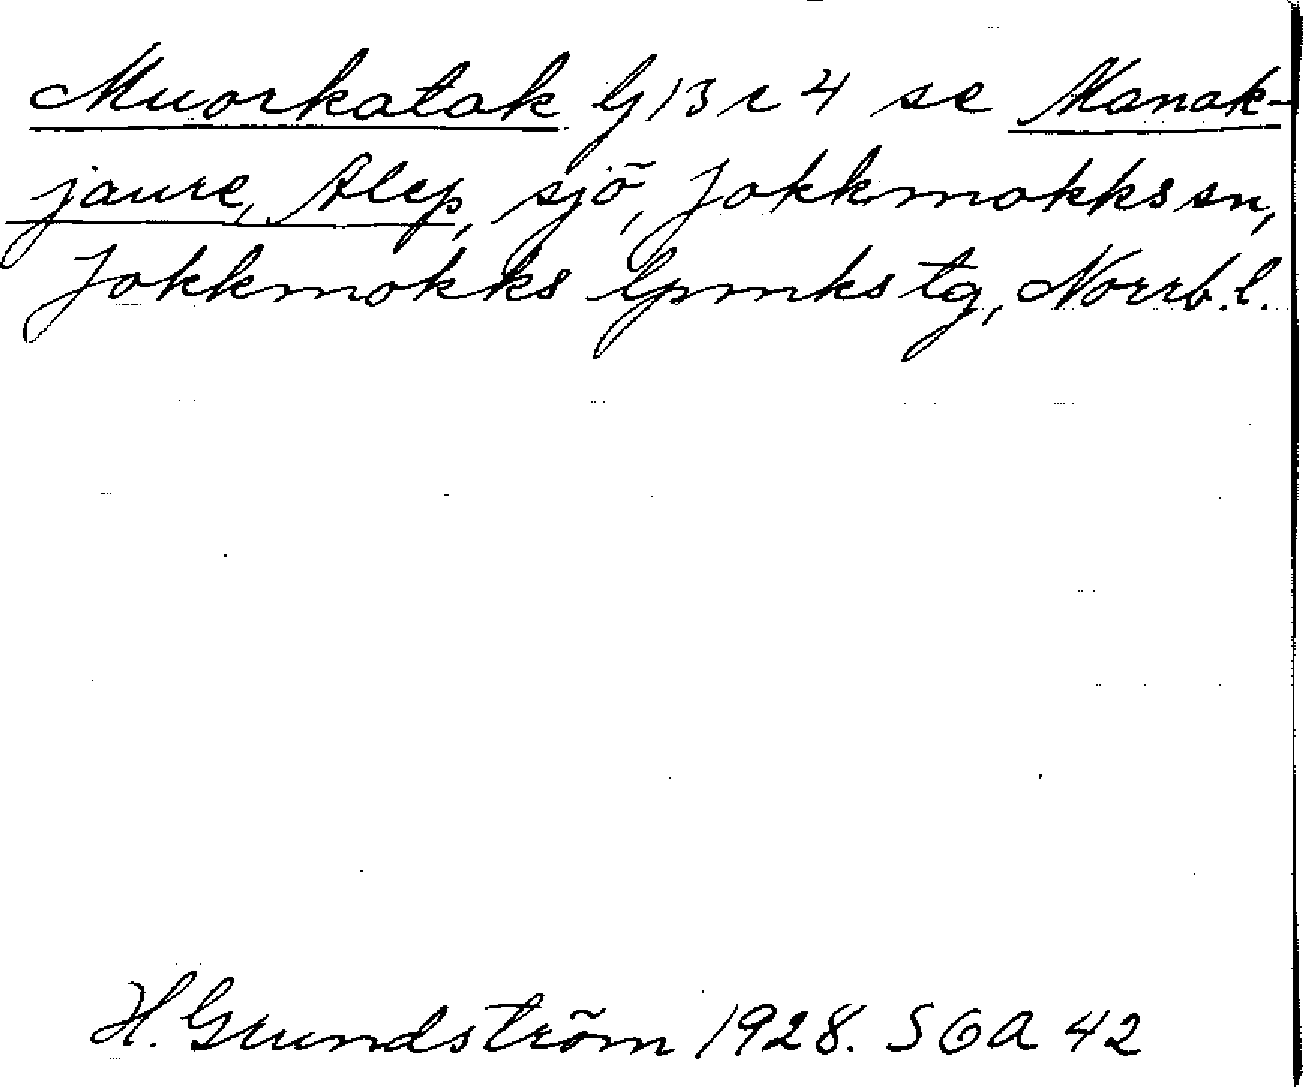 Muorkatak G 13 c 4 se Manak-
jaure, Alep, sjö, Jokkmokks sn,
Jokkmokks lpmks tg, Norrb. l.
H. Grundström 1928. SOA 42